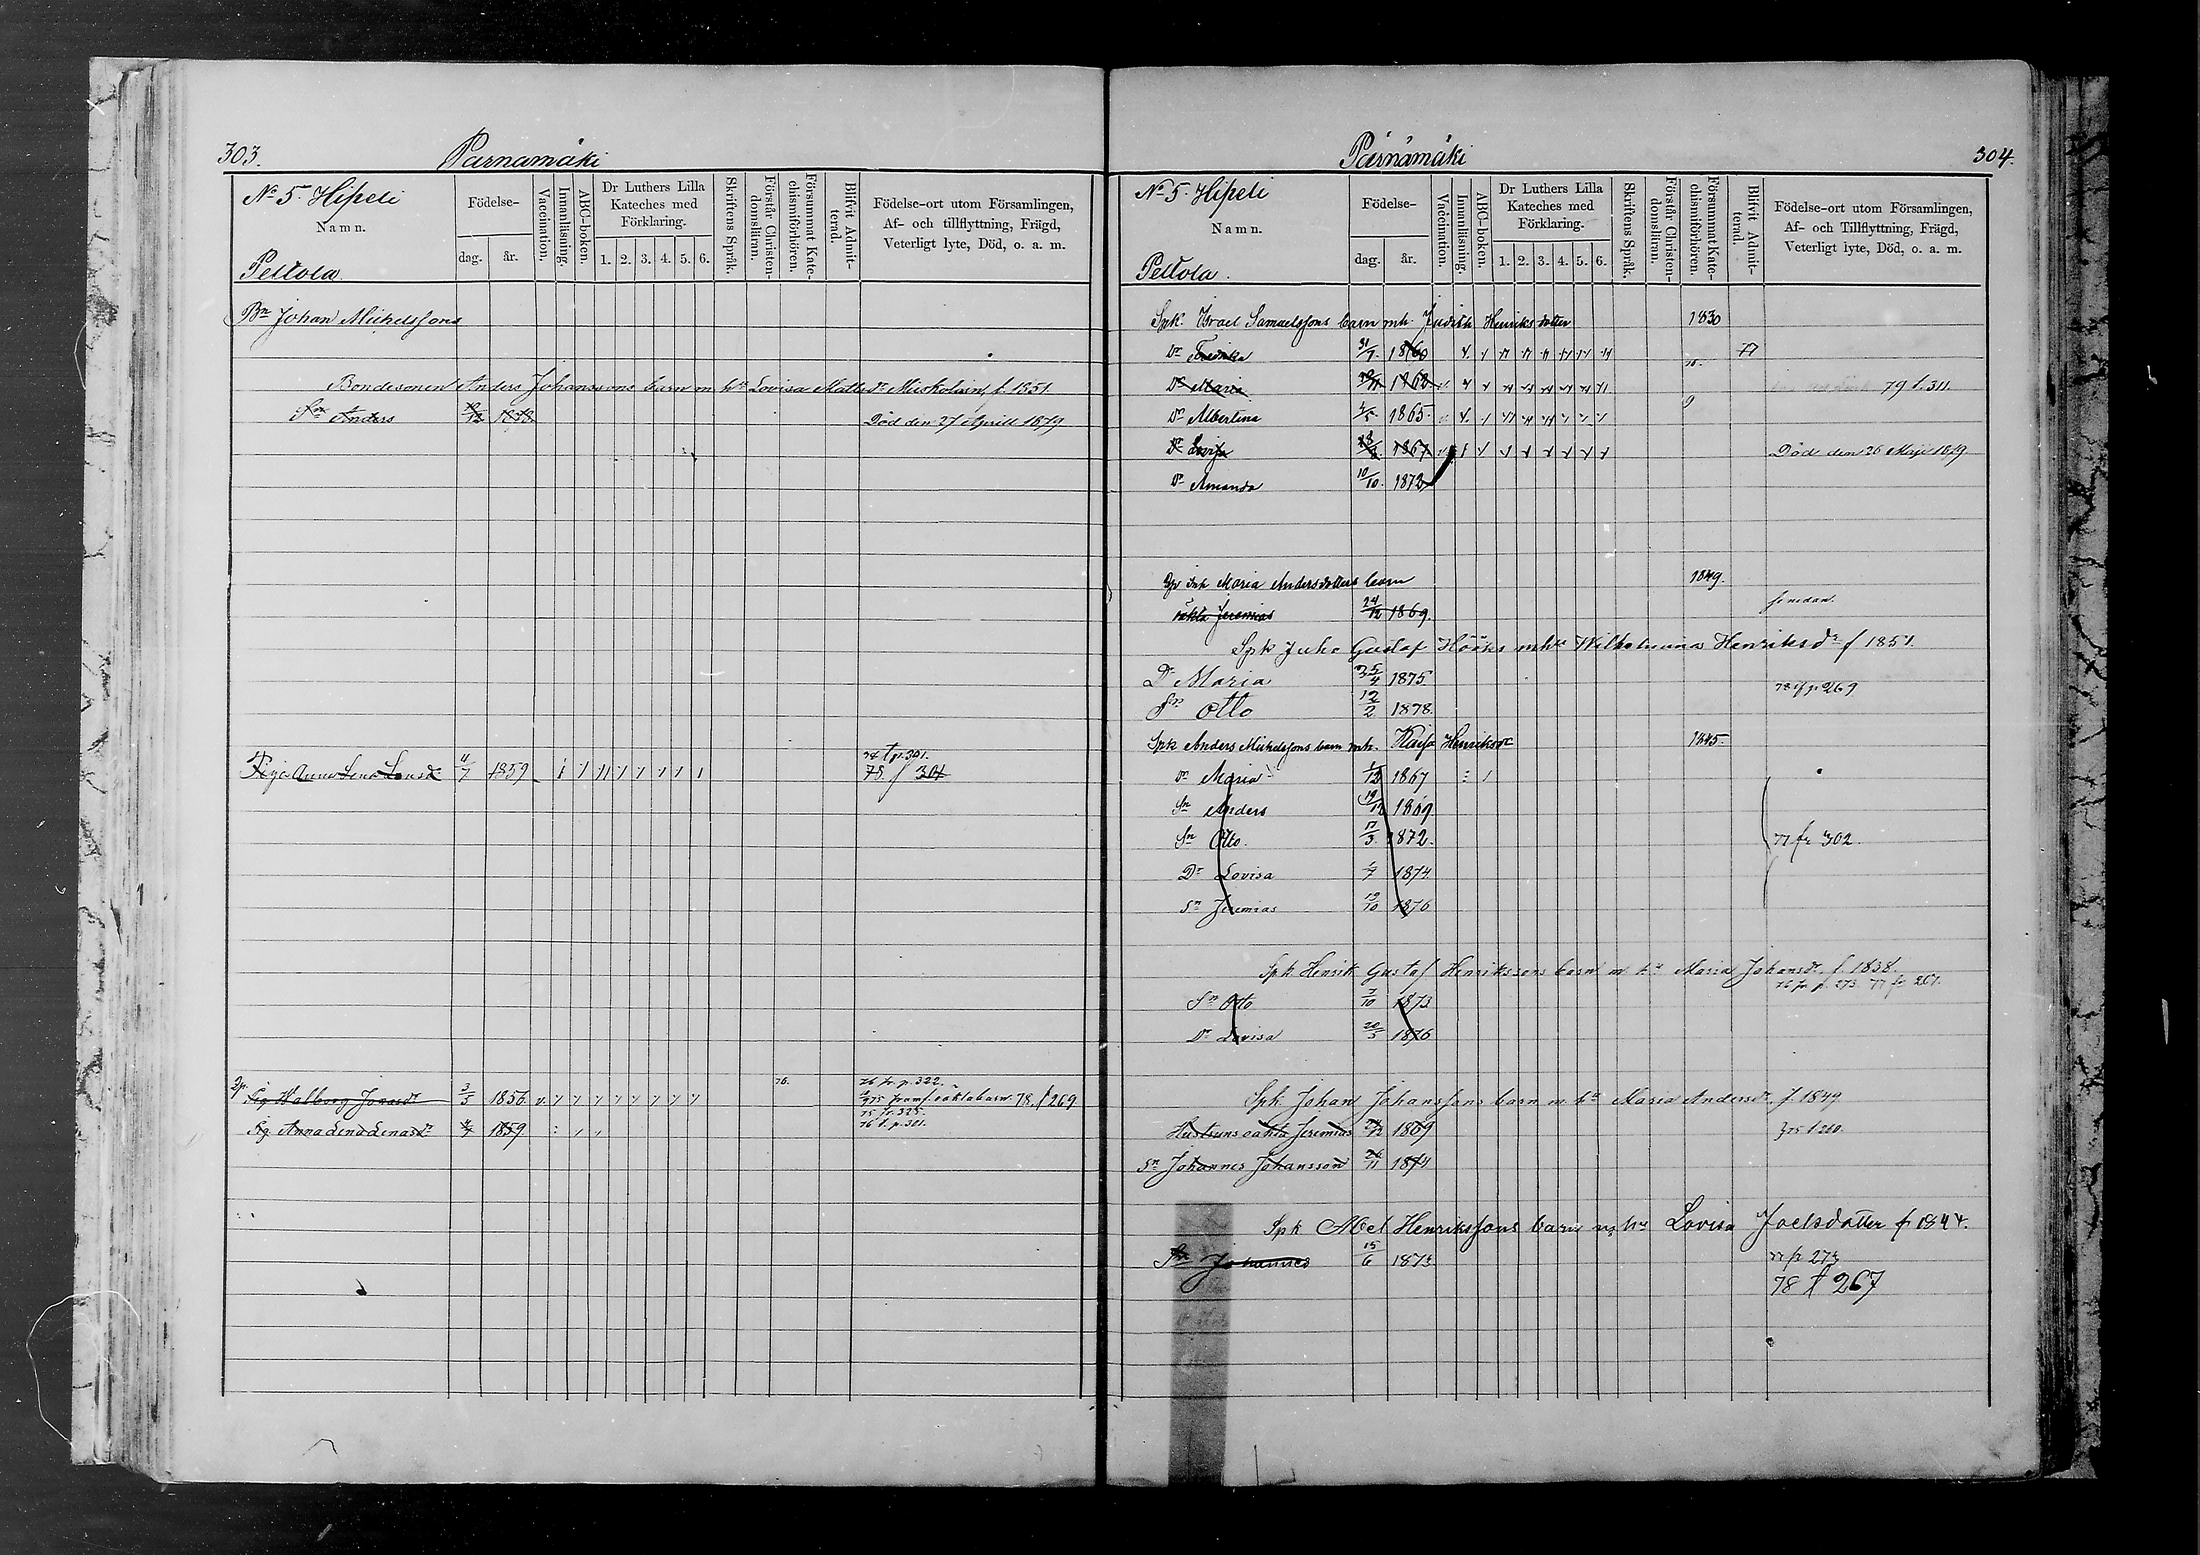 303.
Pärnämäki
No 5. Hipeli
Namn.
Peltola
Födelse-
dag.
år.
Vaccination.
Innanläsning.
ABC-boken.
Dr Luthers Lilla
Kateches med
Förklaring.
1. 2. 3. 4. 5. 6.
Skriftens Språk.
Förstår Christen-
domsläran.
Försummat Kate-
chismiförhören.
Blifvit Admit-
terad.
Födelse-ort utom Församlingen,
Af- och tillflyttning, Frägd,
Veterligt lyte, Död, o. a. m.
Bn Johan Michelssons
Bondesonen Anders Johanssons barn m. h. Lovisa Mattsdr f. 1851
Sn Anders 1878. Död den 27 Aprill 1879
78 f p. 301.
Piga Anna Lena Lenasdr 11/7 1859 78. f 301
76 fr. p. 322.
Pig Walborg 3/5 1856 v. 76. 78. f 269
75 fr. 325.
Pig Anna Lena Lenasdr 1859 76 f. p. 301.
304.
Pärnämäki
No 5. Hipeli
Namn.
Peltola.
Födelse-
dag.
år.
Vaccination.
Innanläsning.
ABC-boken.
Dr Luthers Lilla
Kateches med
Förklaring.
1. 2. 3. 4. 5. 6.
Skriftens Språk.
Förstår Christen-
domsläran.
Försummat Kate-
chismiförhören.
Blifvit Admit-
terad.
Födelse-ort utom Församlingen,
Af- och Tillflyttning, Frägd,
Veterligt lyte, Död, o. a. m.
Spk. Israel Samuelssons barn mh. Judith Henriksdotter 1830
Dr Fredrika 31/7. 1860 77
Dr Maria 1862. 79 f. 311.
Dr Albertina 1865.
Dr Lovisa 1867 Död den 26 Maji 1879
Dr Amanda 10/10. 1872
Maria Andersdotters barn 1849.
oäkta Jeremias 24/12 1869. se nedan.
Spk Juho Gustaf Höök mh Wilhelmina Henriksdr f 1851.
Dr Maria 25/4 1875
78 f p 269
Sn Otto 12/2 1878.
Spk Anders Michelssons barn mh. Kaisa Henriksdr 1845.
Dr Maria 1/12 1867
Sn Anders 19/12 1869
Sn Otto. 17/3 1872. 77 fr 302.
Dr Lovisa 1874
Sn Jeremias 19/10 1876
Spk Henrik Gustaf Henrikssons barn m hu Maria Johansdr f. 1838.
76 fr p. 273. 77 fr 267.
Sn Otto 7/10 1873
Dr Lovisa 20/5 1876
Spk Johan Johanssons barn m hu Maria Andersdr f. 1849.
Hustruns oäkta Jeremias 1869
Sn Johannes Johansson 26/11 1874
Spk Abel Henrikssons barn m hu Lovisa Joelsdotter f 1844.
Sn Johannes 15/6 1873 77 fr 273
78 f 267